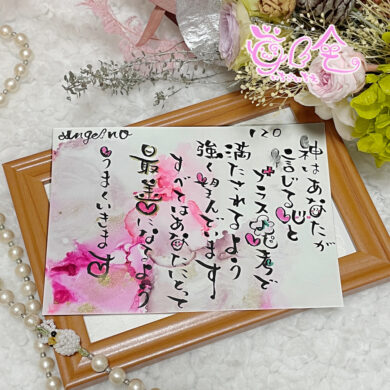 angel no
120
神はあなたが
信じる心と
プラス思考で
満たされるよう
強く望んでいます
すべてはあなたにとって
最善になるよう
うまくいきます